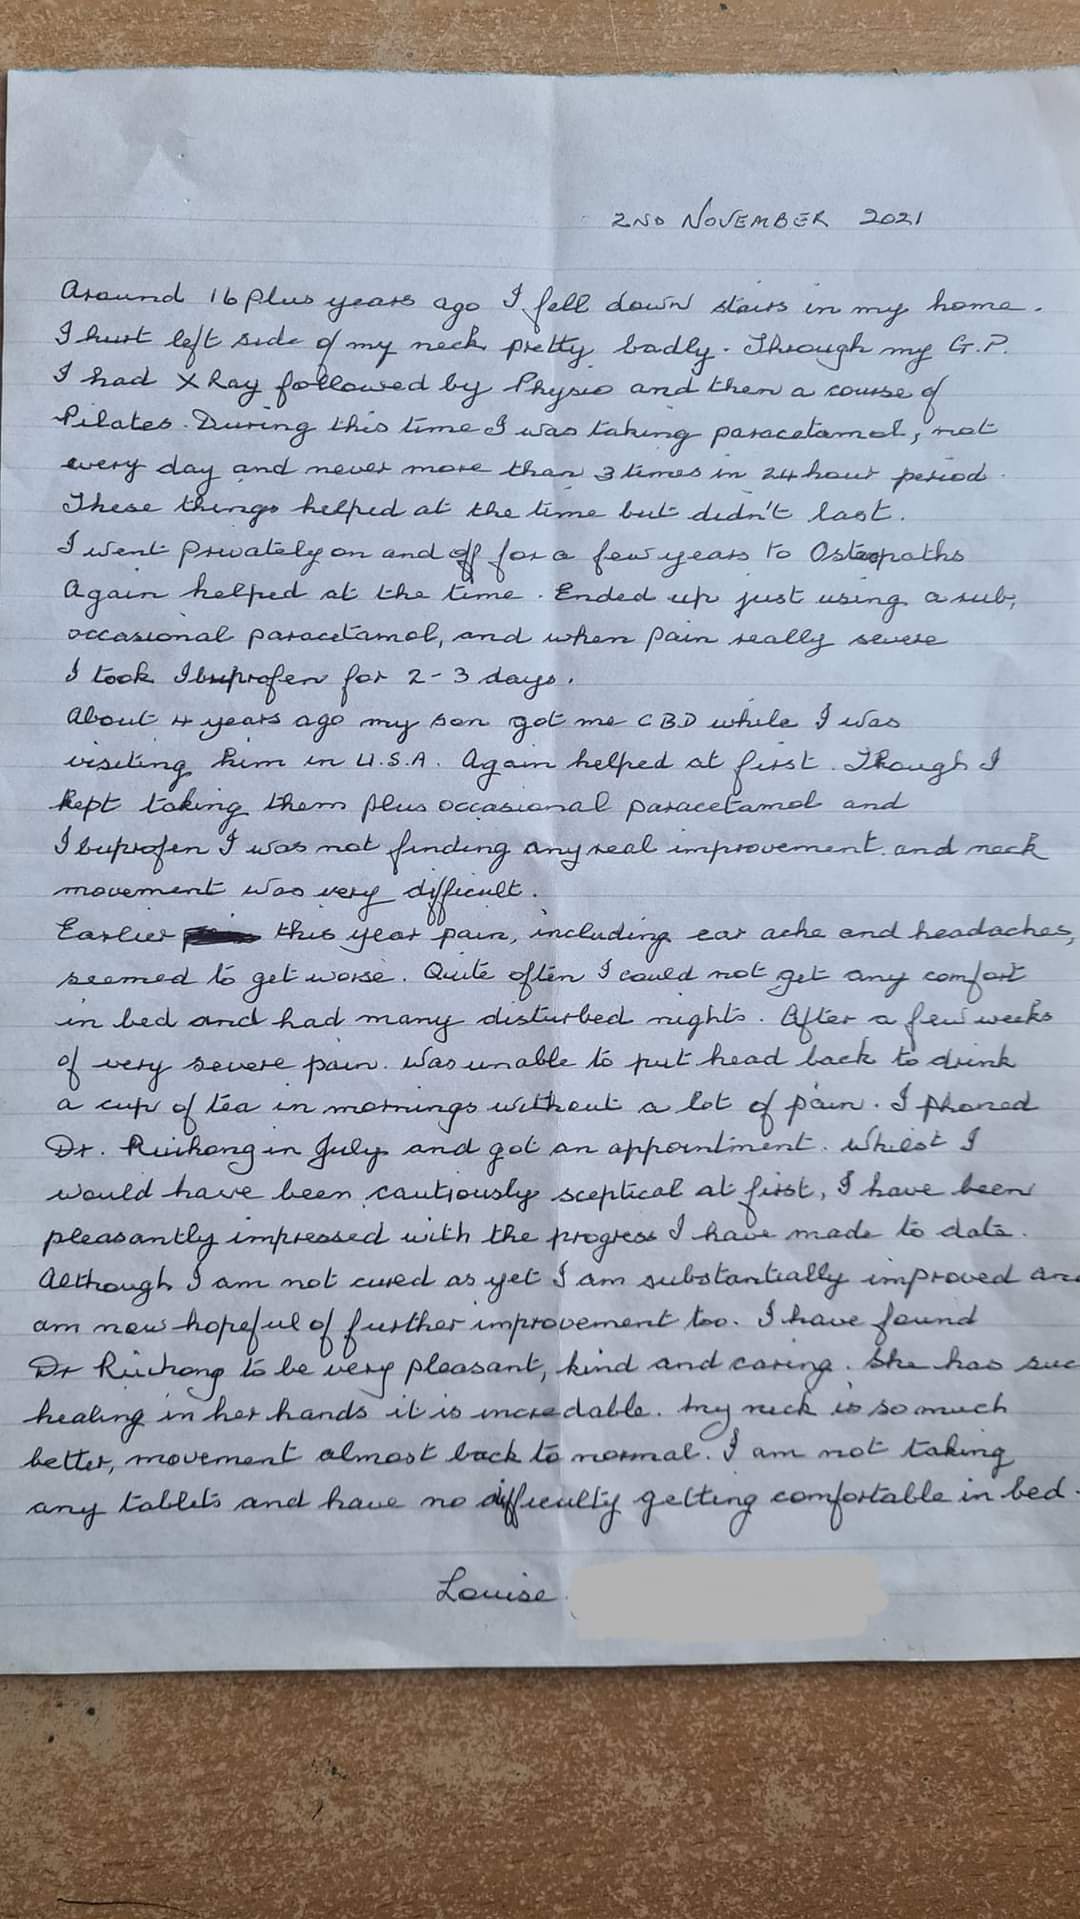 2ND NOVEMBER 2021
Around 16 plus years ago I fell down stairs in my home.
I hurt left side of my neck pretty badly. Through my G.P.
I had X Ray followed by Physio and then a course of
Pilates. During this time I was taking paracetamol, not
every day and never more than 3 times in 24 hour period.
These things helped at the time but didn't last.
I went privately on and off for a few years to Osteopaths
Again helped at the time. Ended up just using a rub,
occasional paracetamol, and when pain really severe
I took Ibuprofen for 2-3 days.
About 4 years ago my son got me CBD while I was
visiting him in U.S.A. Again helped at first. Though I
kept taking them plus occasional paracetamol and
Ibuprofen I was not finding any real improvement and neck
movement was very difficult.
Earlier this year pain, including ear ache and headaches,
seemed to get worse. Quite often I could not get any comfort
in bed and had many disturbed nights. After a few weeks
of very severe pain. Was unable to put head back to drink
a cup of tea in mornings without a lot of pain. I phoned
Dr. Ruihong in July and got an appointment. Whilst I
would have been cautiously sceptical at first, I have been
pleasantly impressed with the progress I have made to date.
Although I am not cured as yet I am substantially improved and
am now hopeful of further improvement too. I have found
Dr Ruihong to be very pleasant, kind and caring. She has suc
healing in her hands it is incredable. My neck is so much
better, movement almost back to normal. I am not taking
any tablets and have no difficulty getting comfortable in bed.
Louise